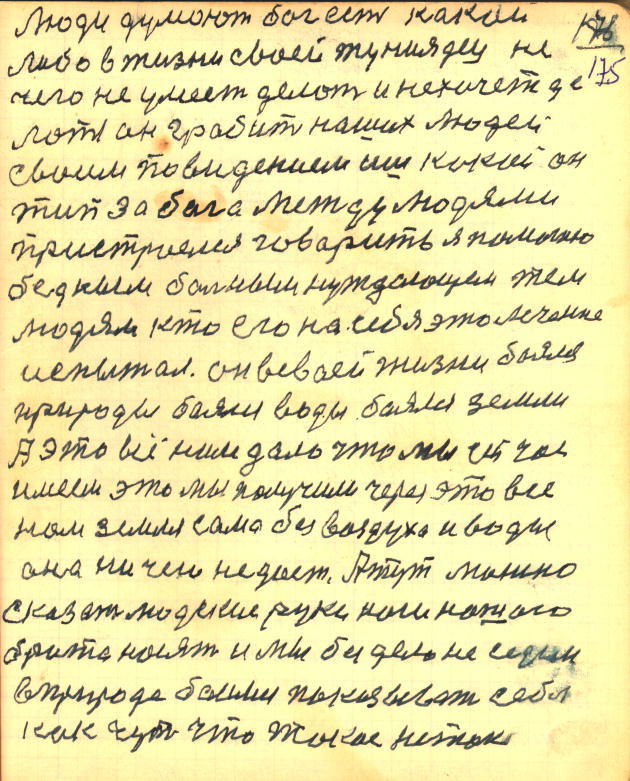 Люди думоют бог есть какой
либо в жизни своей туниядец не
чего не умеет делот и нехочет де
лоть он грабит наших людей
своим поведением ищи кокой он
тип за бога между людями
пристроелся говорить я помогаю
бедным болным нуждающем тем
людям кто его на себя это лечение
испытал. он в своей жизни боялся
природы боялся воды боялся земли
А это всё ним дало что мы сей час
имеем это мы получили через это все
ном земля сама без воздуха и воды
она ничего недоет. А тут можно
сказать людские руки ноги ношого
брата носят и мы без дела не седим
в природе боимся показывать себя
как чуть что токое не ток